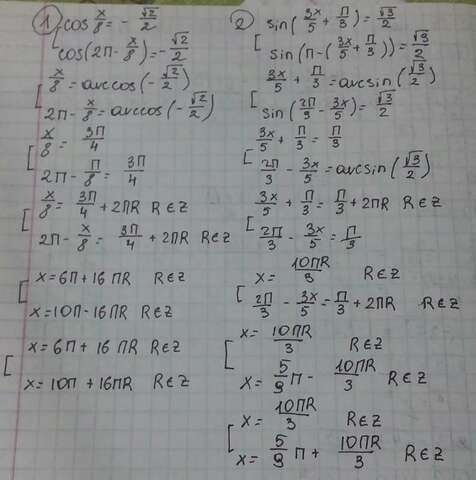 1) cos x/8 = - √2/2
cos(2П - x/8) = - √2/2
x/8 = arccos(- √2/2)
2П - x/8 = arccos(- √2/2)
x/8 = 3П/4
2П - П/8 = 3П/4
x/8 = 3П/4 + 2ПR R∈Z
2П - x/8 = 3П/4 + 2ПR R∈Z
x = 6П + 16 ПR R∈Z
x = 10П - 16ПR R∈Z
x = 6П + 16 ПR R∈Z
x = 10П + 16ПR R∈Z
2) sin(3x/5 + П/3) = √3/2
sin(П - (3x/5 + П/3)) = √3/2
3x/5 + П/3 = arcsin(√3/2)
sin(2П/3 - 3x/5) = √3/2
3x/5 + П/3 = П/3
2П/3 - 3x/5 = arcsin(√3/2)
3x/5 + П/3 = П/3 + 2ПR R∈Z
2П/3 - 3x/5 = П/3
x = 10ПR/3 R∈Z
2П/3 - 3x/5 = П/3 + 2ПR R∈Z
x = 10ПR/3 R∈Z
x = 5/9 П - 10ПR/3 R∈Z
x = 10ПR/3 R∈Z
x = 5/9 П + 10ПR/3 R∈Z